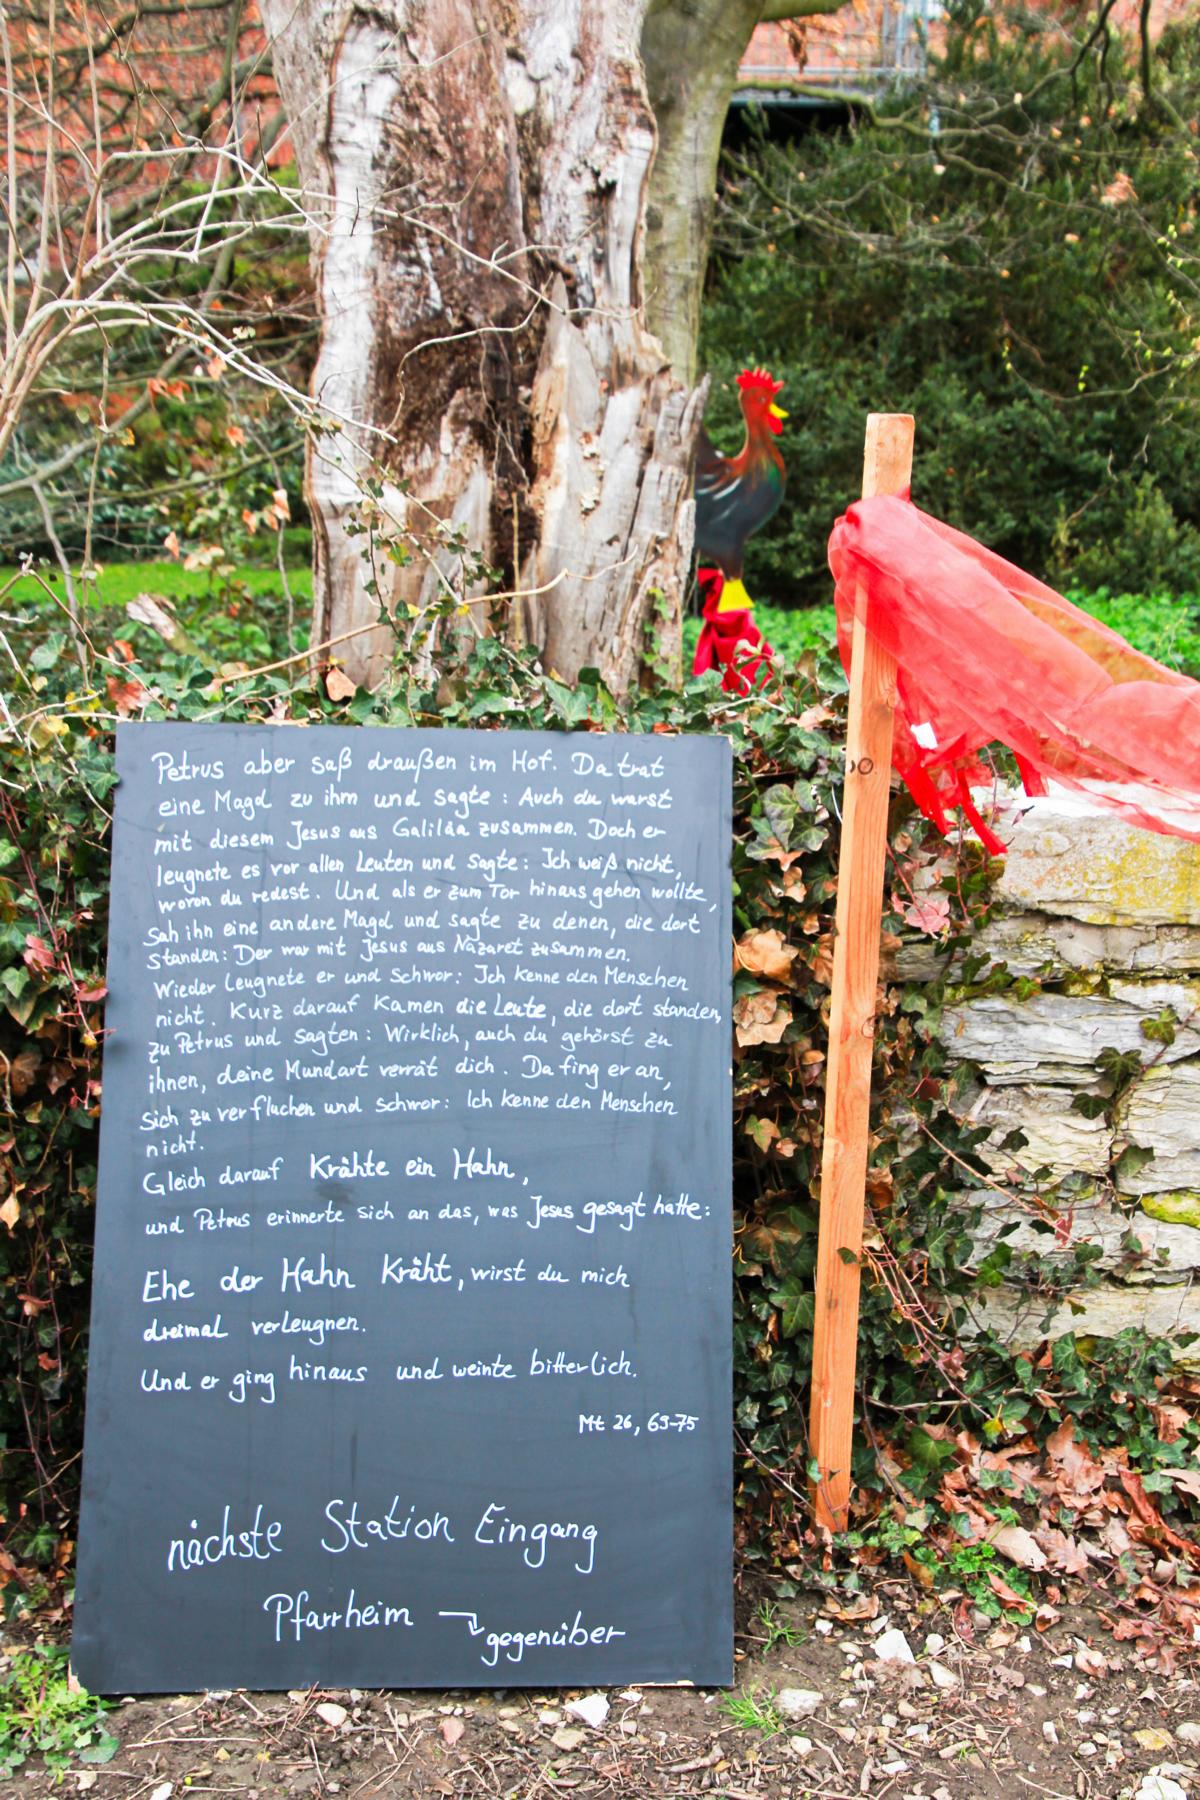 Petrus aber saß draußen im Hof. Da trat
eine Magd zu ihm und sagte: Auch du warst
mit diesem Jesus aus Galiläa zusammen. Doch er
leugnete es vor allen Leuten und sagte: Ich weiß nicht,
wovon du redest. Und als er zum Tor hinausgehen wollte,
sah ihn eine andere Magd und sagte zu denen, die dort
standen: Der war mit Jesus aus Nazaret zusammen.
Wieder leugnete er und schwor: Ich kenne den Menschen
nicht. Kurz darauf kamen die Leute, die dort standen,
zu Petrus und sagten: Wirklich, auch du gehörst zu
ihnen, deine Mundart verrät dich. Da fing er an,
sich zu verfluchen und schwor: Ich kenne den Menschen
nicht.
Gleich darauf krähte ein Hahn,
und Petrus erinnerte sich an das, was Jesus gesagt hatte:
Ehe der Hahn kräht, wirst du mich
dreimal verleugnen.
Und er ging hinaus und weinte bitterlich.
Mt 26, 69-75
nächste Station Eingang
Pfarrheim
gegenüber